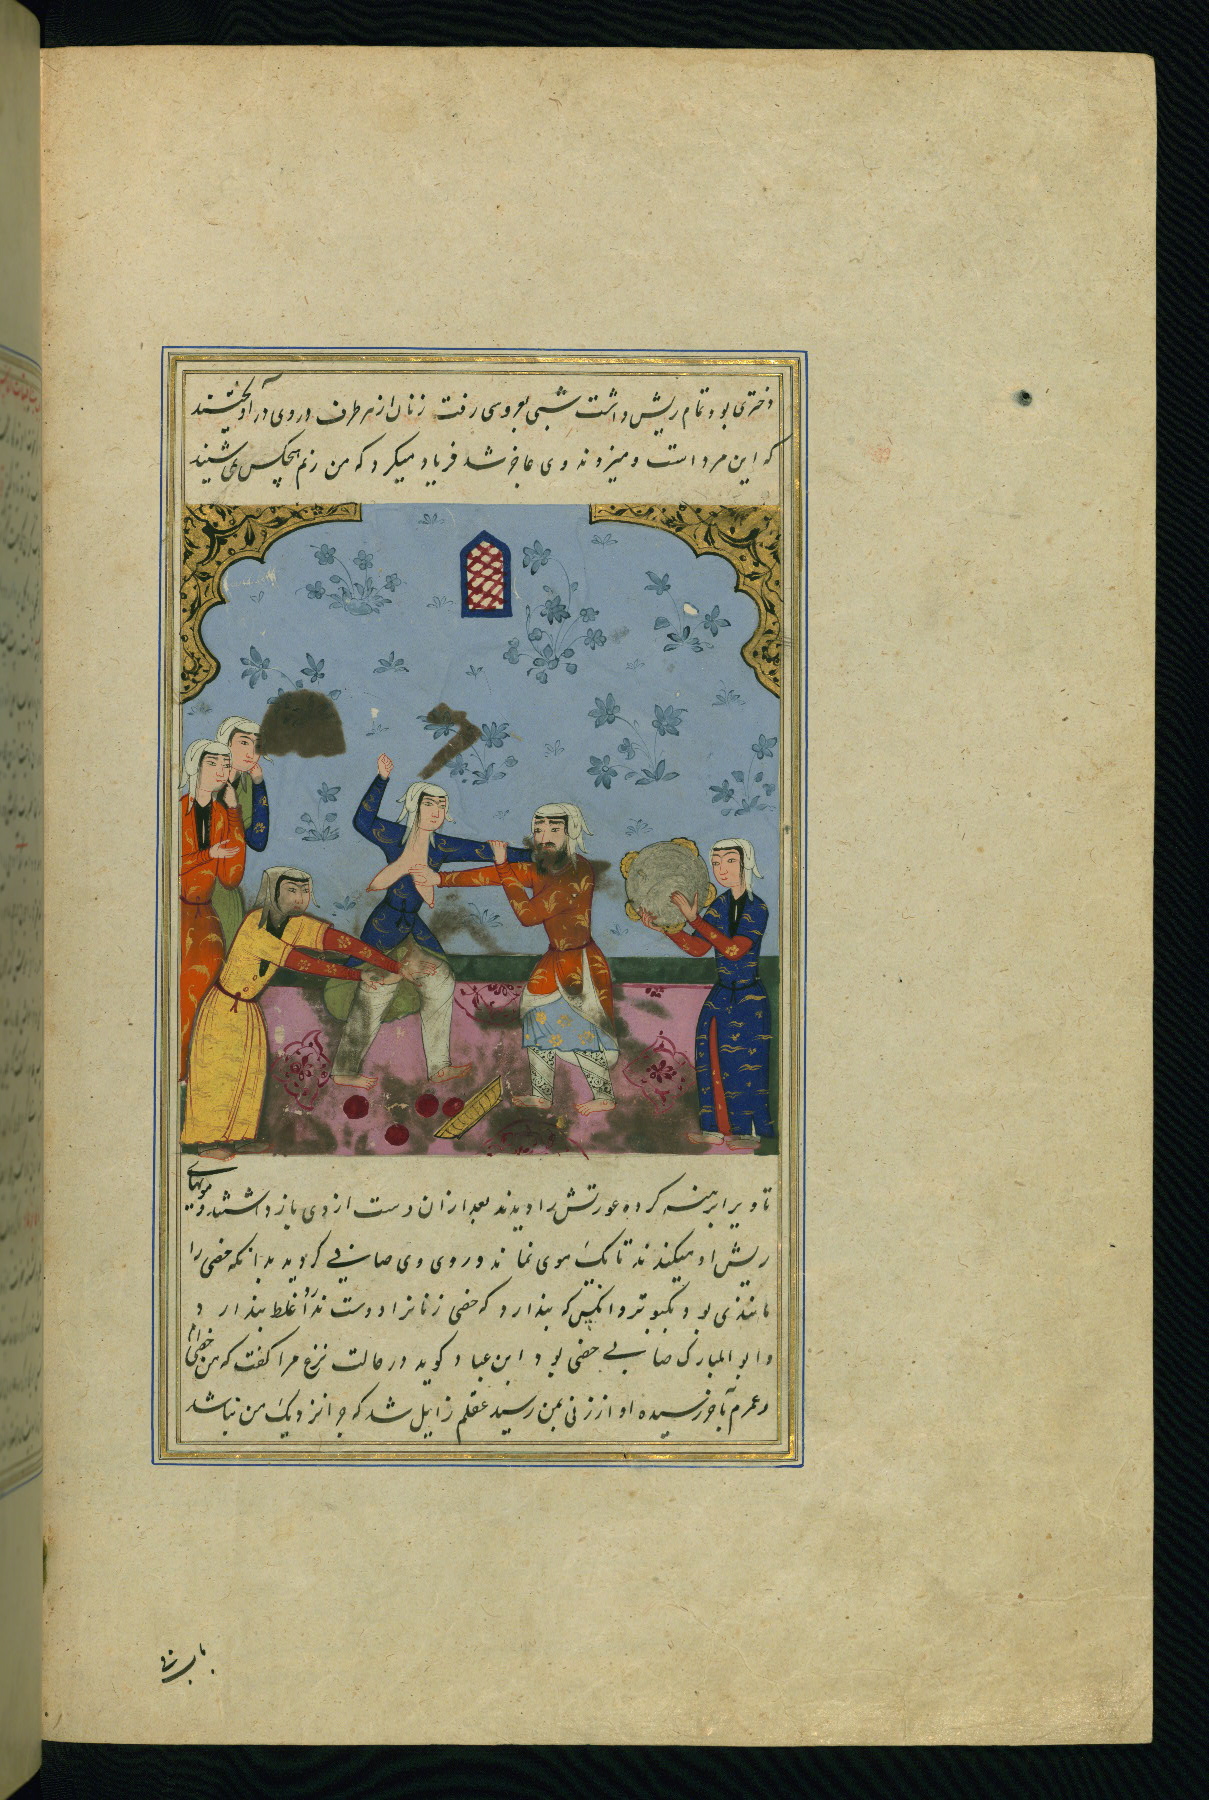 دختری بود تمام ریش داشت شبی بعروسی رفت زنان از هر طرف در وی در آویختند
که این مرد است و میزدند وی عاجز شد فریاد میکرد که من زنم هیچکس نمی شنید
تا ویرا برهنه کرده عورتش را دیدند بعد ازان دست از وی باز داشتند و مویهای
ریش او میکندند تا یک موی نماند در روی وی صابی گوید بدانکه خصی را
مانندی بود بکبوتر و انکس که پندارد که خصی زنانرا دوست ندارد غلط پندارد
و ابو المبارک صابی خصی بود ابن عباد کوید در حالت نزع مرا کفت که من خصی ام
و عمرم بآخر رسیده اواز زنی بمن رسید عقلم زایل شد که چرا نزدیک من نباشد